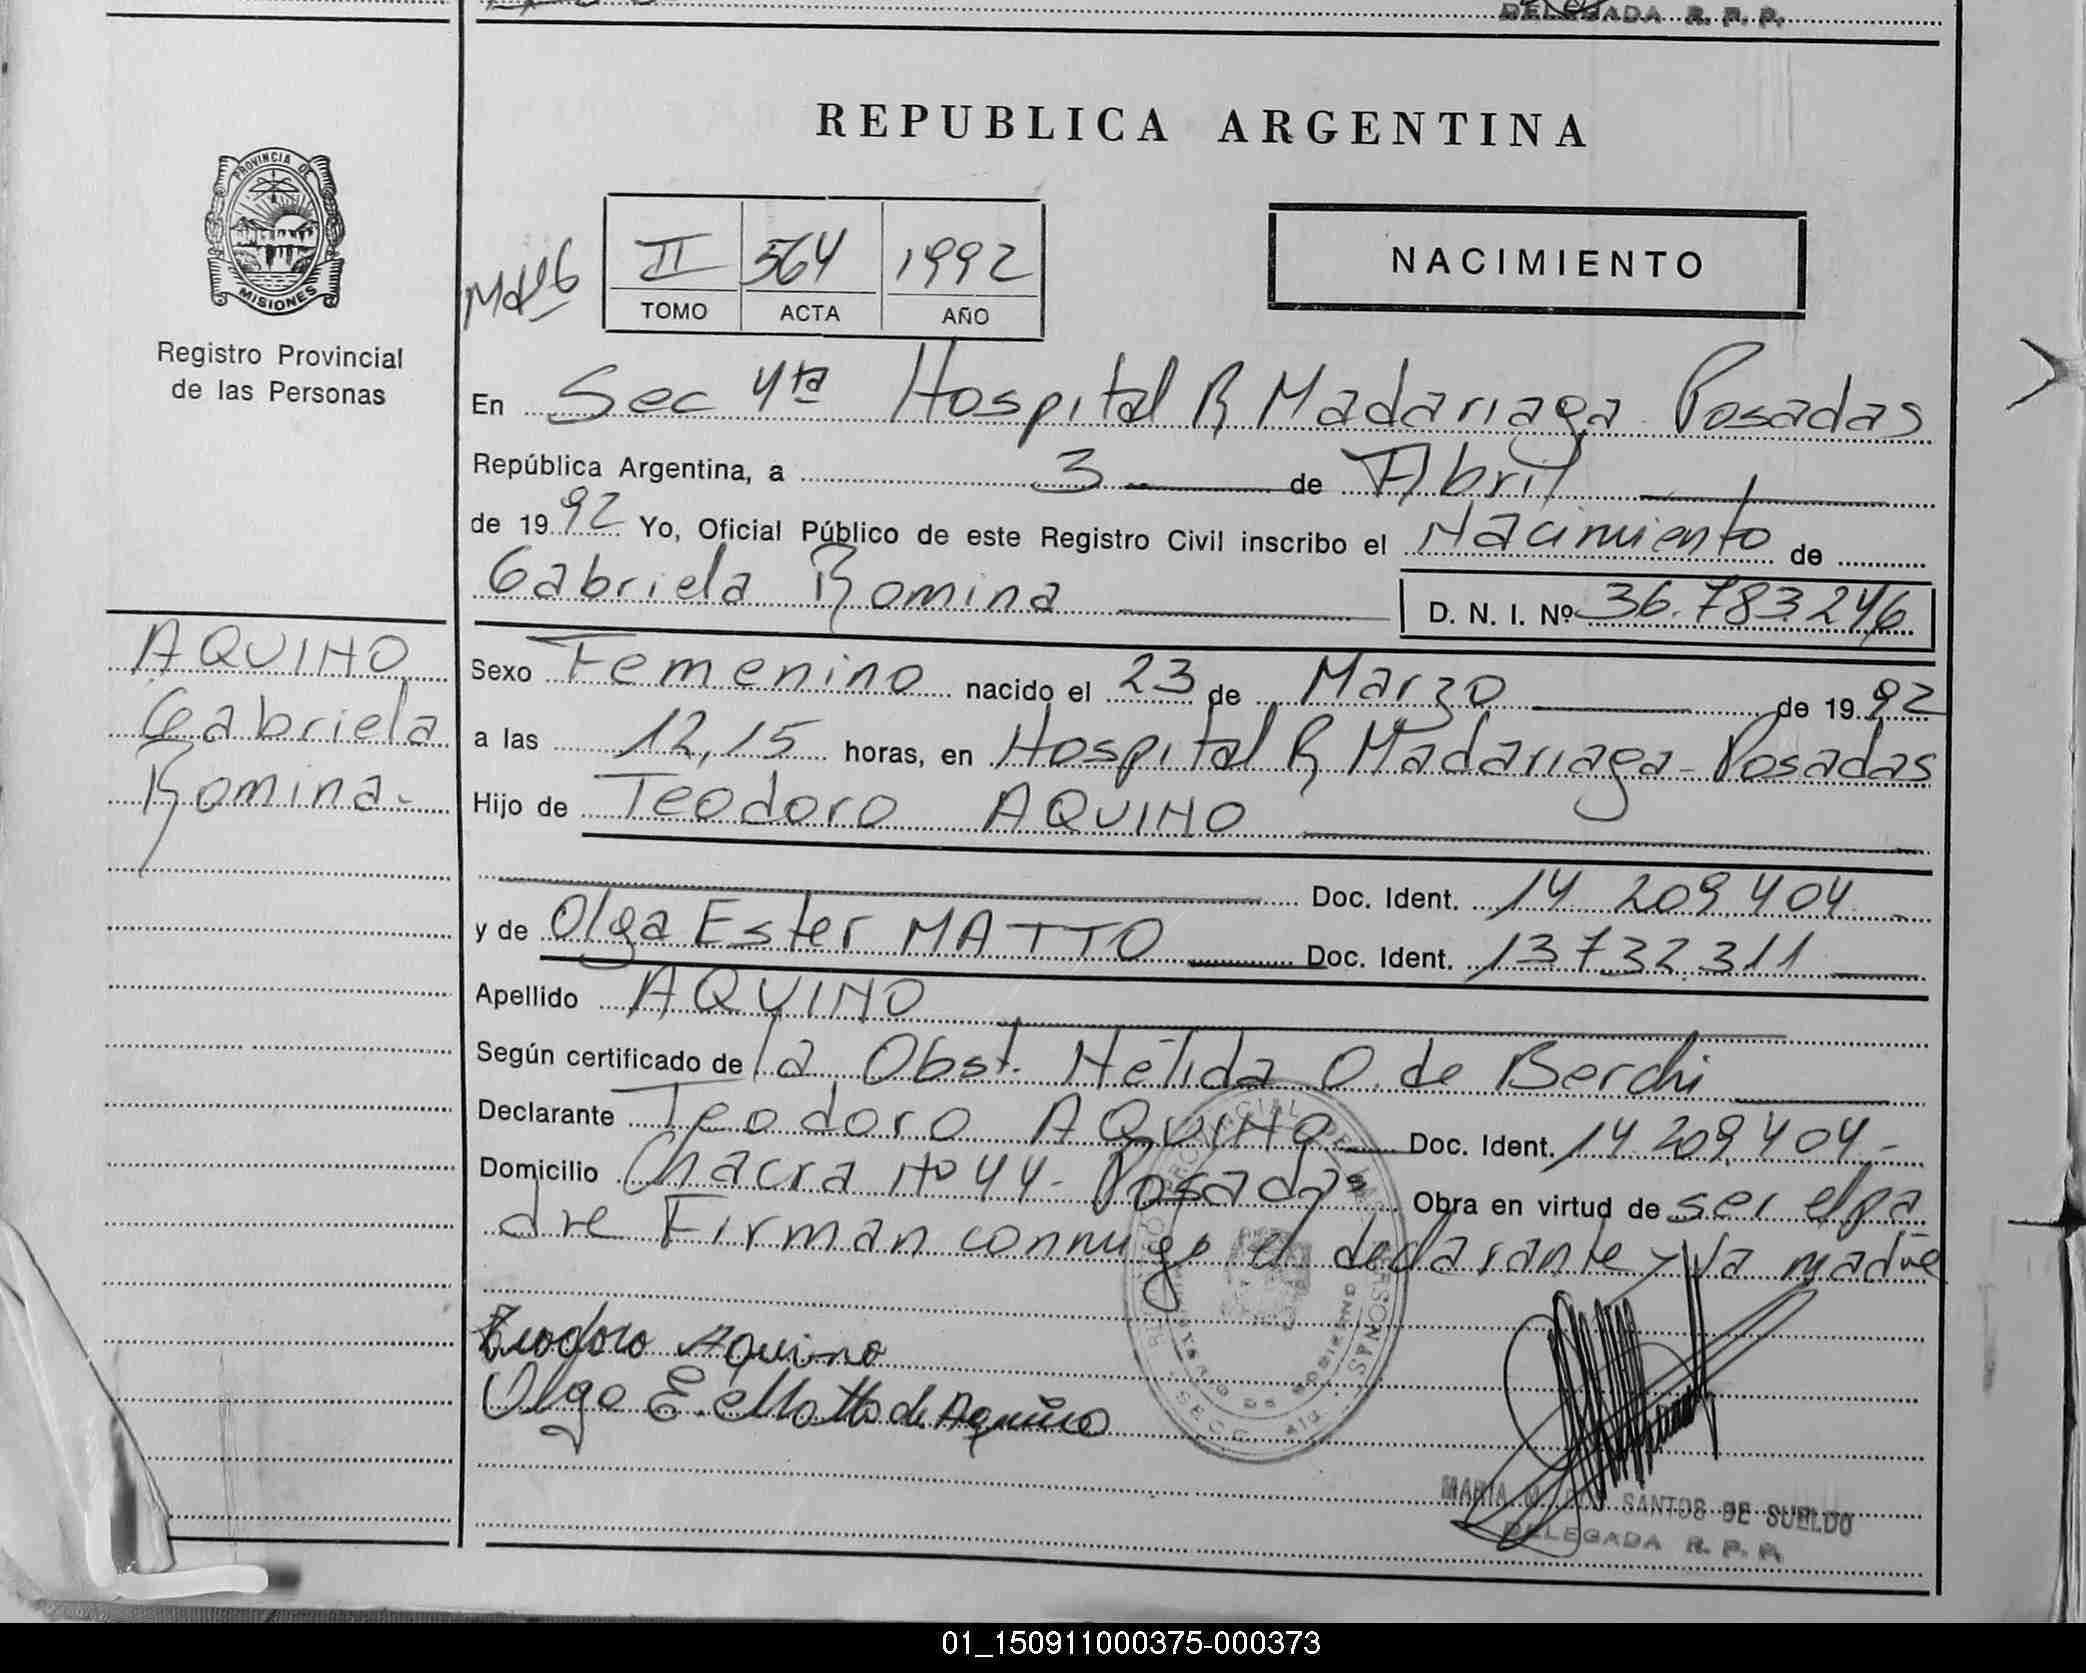 DELEGADA R. P. P.
REPUBLICA ARGENTINA
PROVINCIA DE
MISIONES
Registro Provincial
de las Personas
II 564 1992
TOMO ACTA AÑO
NACIMIENTO
En Sec 4ta Hospital R Madariaga Posadas
República Argentina, a 3 de Abril
de 1992 Yo, Oficial Público de este Registro Civil inscribo el Nacimiento de
Gabriela Romina D. N. I. Nº 36.783.246
AQUINO
Gabriela
Romina.-
Sexo Femenino nacido el 23 de Marzo de 1992
a las 12,15 horas, en Hospital R Madariaga - Posadas
Hijo de Teodoro AQUINO
Doc. Ident. 14 209.404
y de Olga Ester MATTO Doc. Ident. 13732311
Apellido AQUINO
Según certificado de la Obst. Nélida O. de Berchi
Declarante Teodoro AQUINO Doc. Ident. 14 209.404.-
Domicilio Chacra Nº 44 - Posadas Obra en virtud de ser el pa
dre Firman conmigo el declarante y la madre
Teodoro Aquino
Olga E. Matto de Aquino
SANTOS DE SUELDO
DELEGADA R. P. P.
01_150911000375-000373